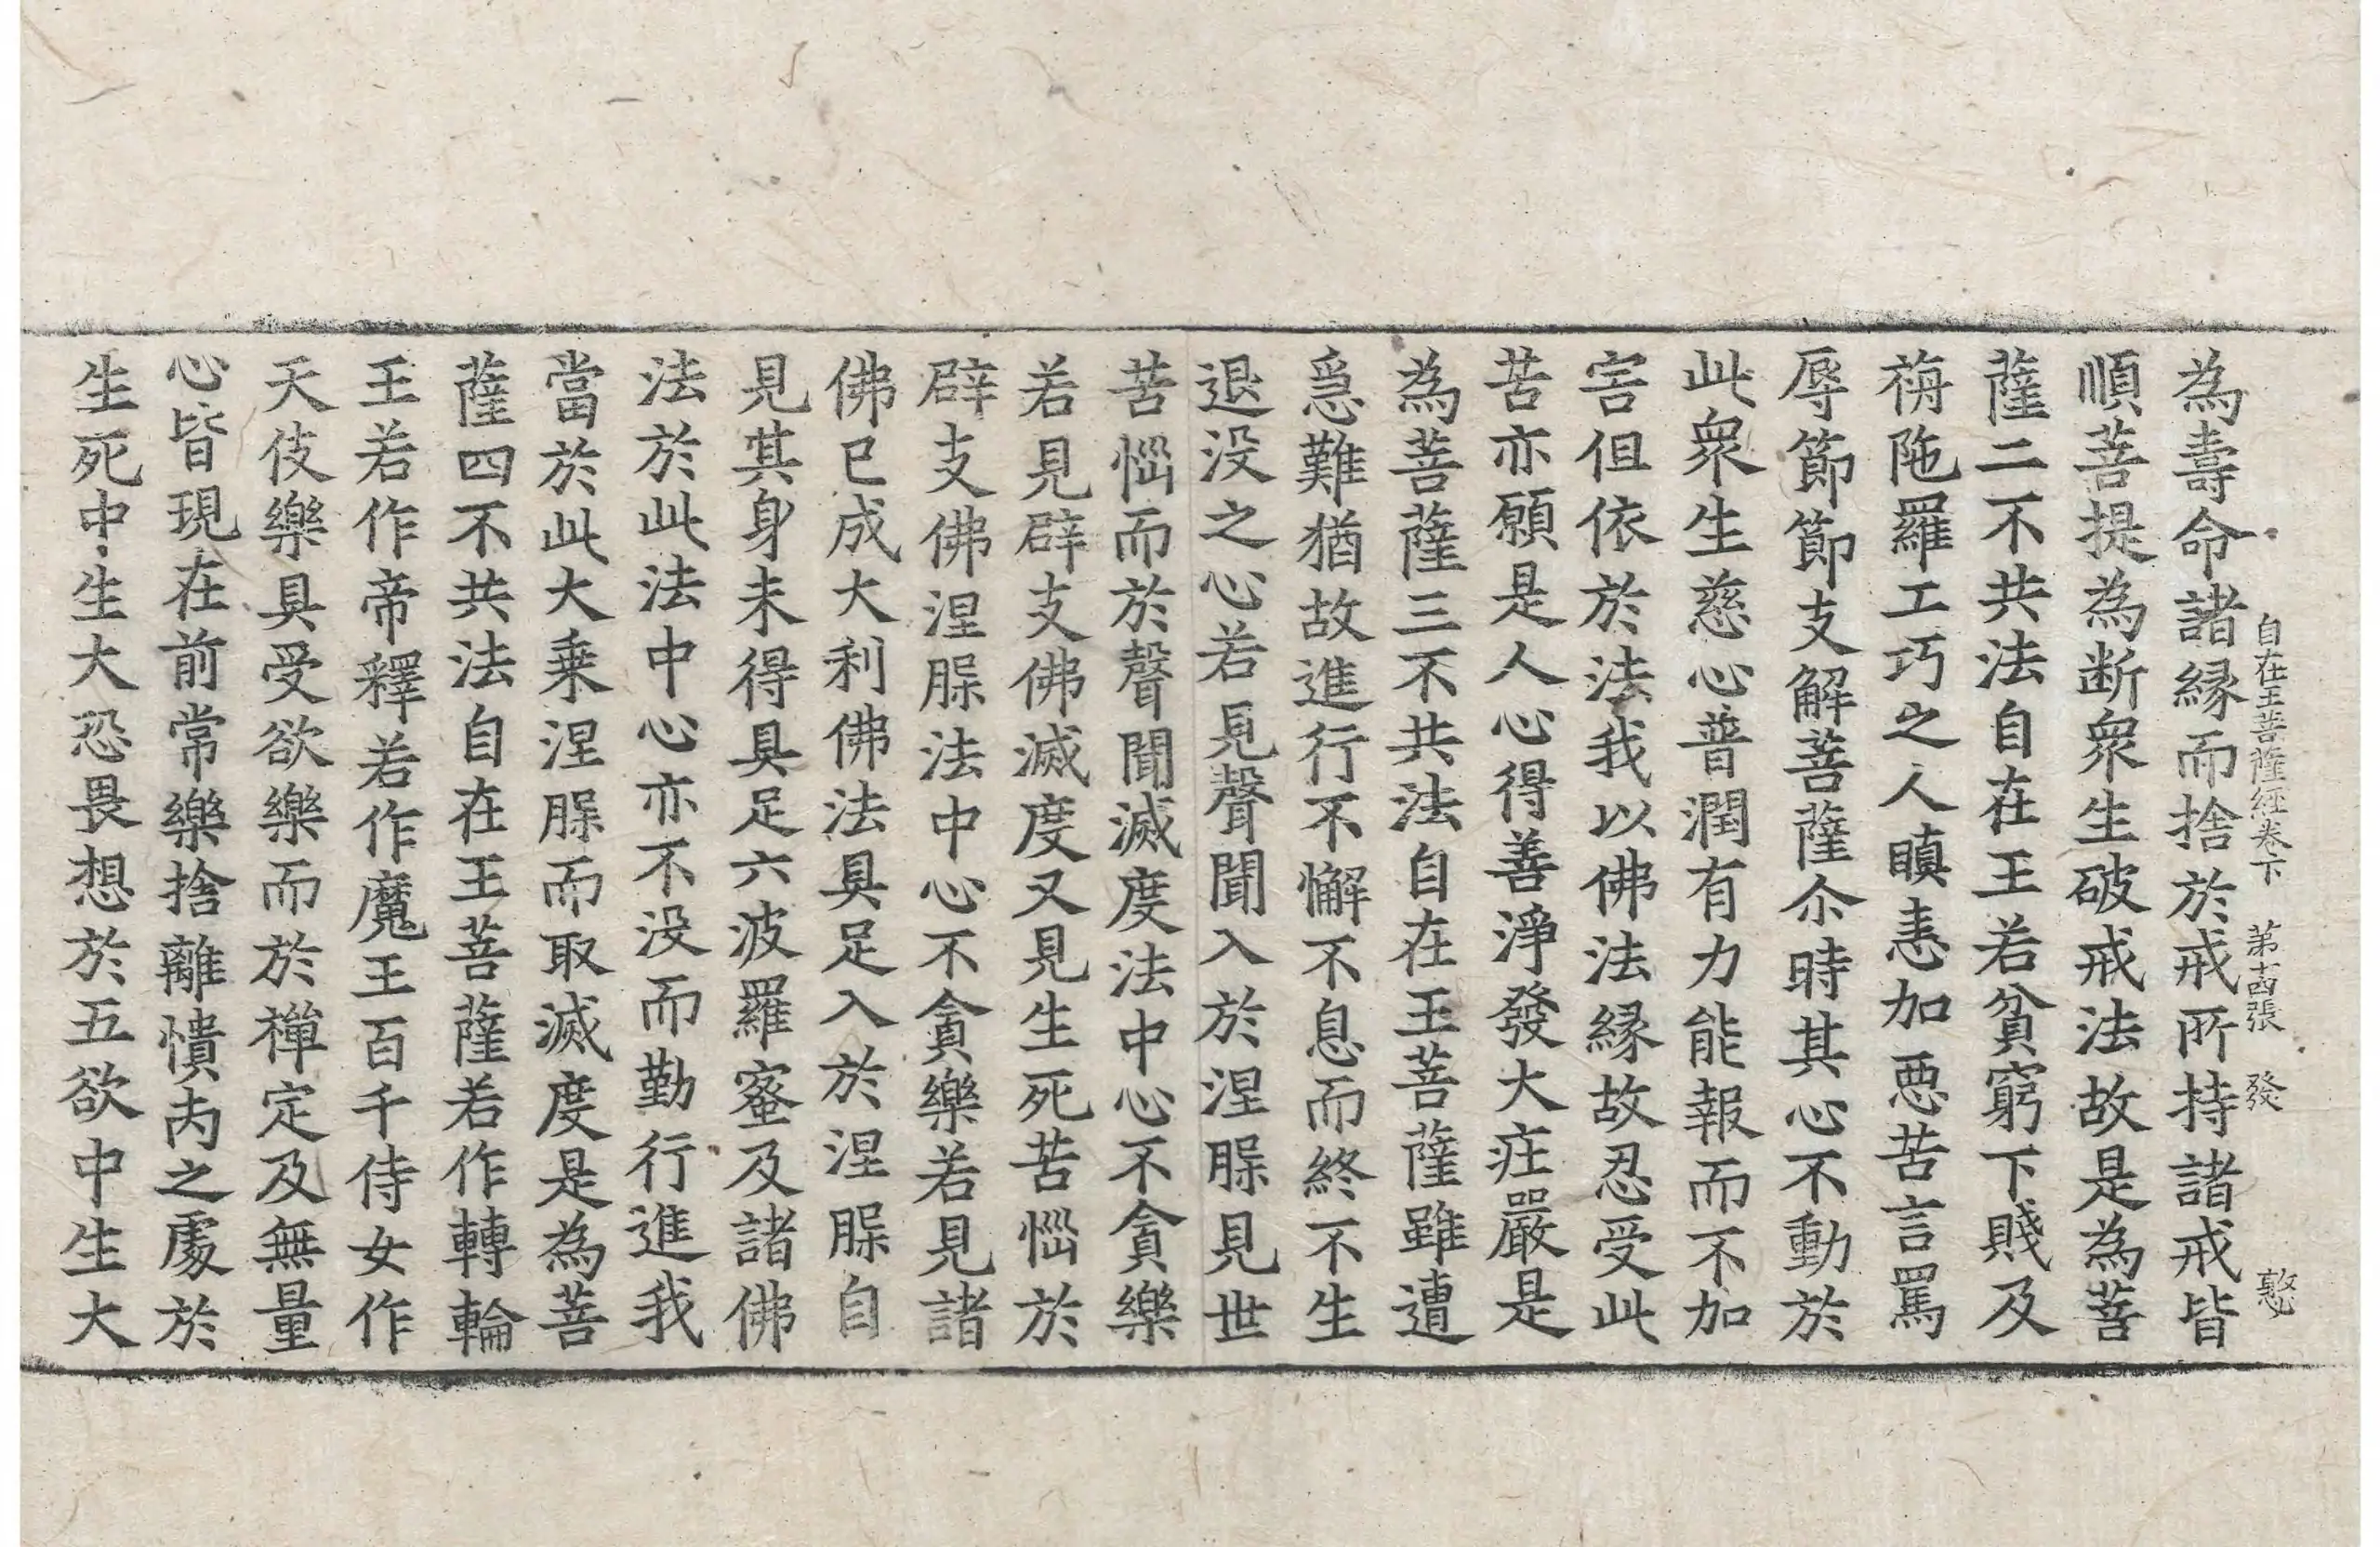 自在王菩薩經卷下 第十四張 發 憼
為壽命諸縁而捨於戒所持諸戒皆
順菩提為断衆生破戒法故是為菩
薩二不共法自在王若貧窮下賤及
栴陁羅工巧之人瞋恚加惡苦言罵
辱節節支解菩薩尒時其心不動於
此衆生慈心普潤有力能報而不加
害但依於法我以佛法縁故忍受此
苦亦願是人心得善淨發大疘嚴是
為菩薩三不共法自在王菩薩雖遭
急難猶故進行不懈不息而終不生
退没之心若見聲聞入於涅槃見世
苦惱而於聲聞滅度法中心不貪樂
若見辟支佛滅度又見生死苦惱於
辟支佛涅槃法中心不貪樂若見諸
佛已成大利佛法具足入於涅槃自
見其身未得具足六波羅蜜及諸佛
法於此法中心亦不没而勤行進我
當於此大乗涅槃而取滅度是為菩
薩四不共法自在王菩薩若作轉輪
王若作帝釋若作魔王百千侍女作
天伎樂具受欲樂而於禪定及無量
心皆現在前常樂捨離憒内之處於
生死中生大恐畏想於五欲中生大